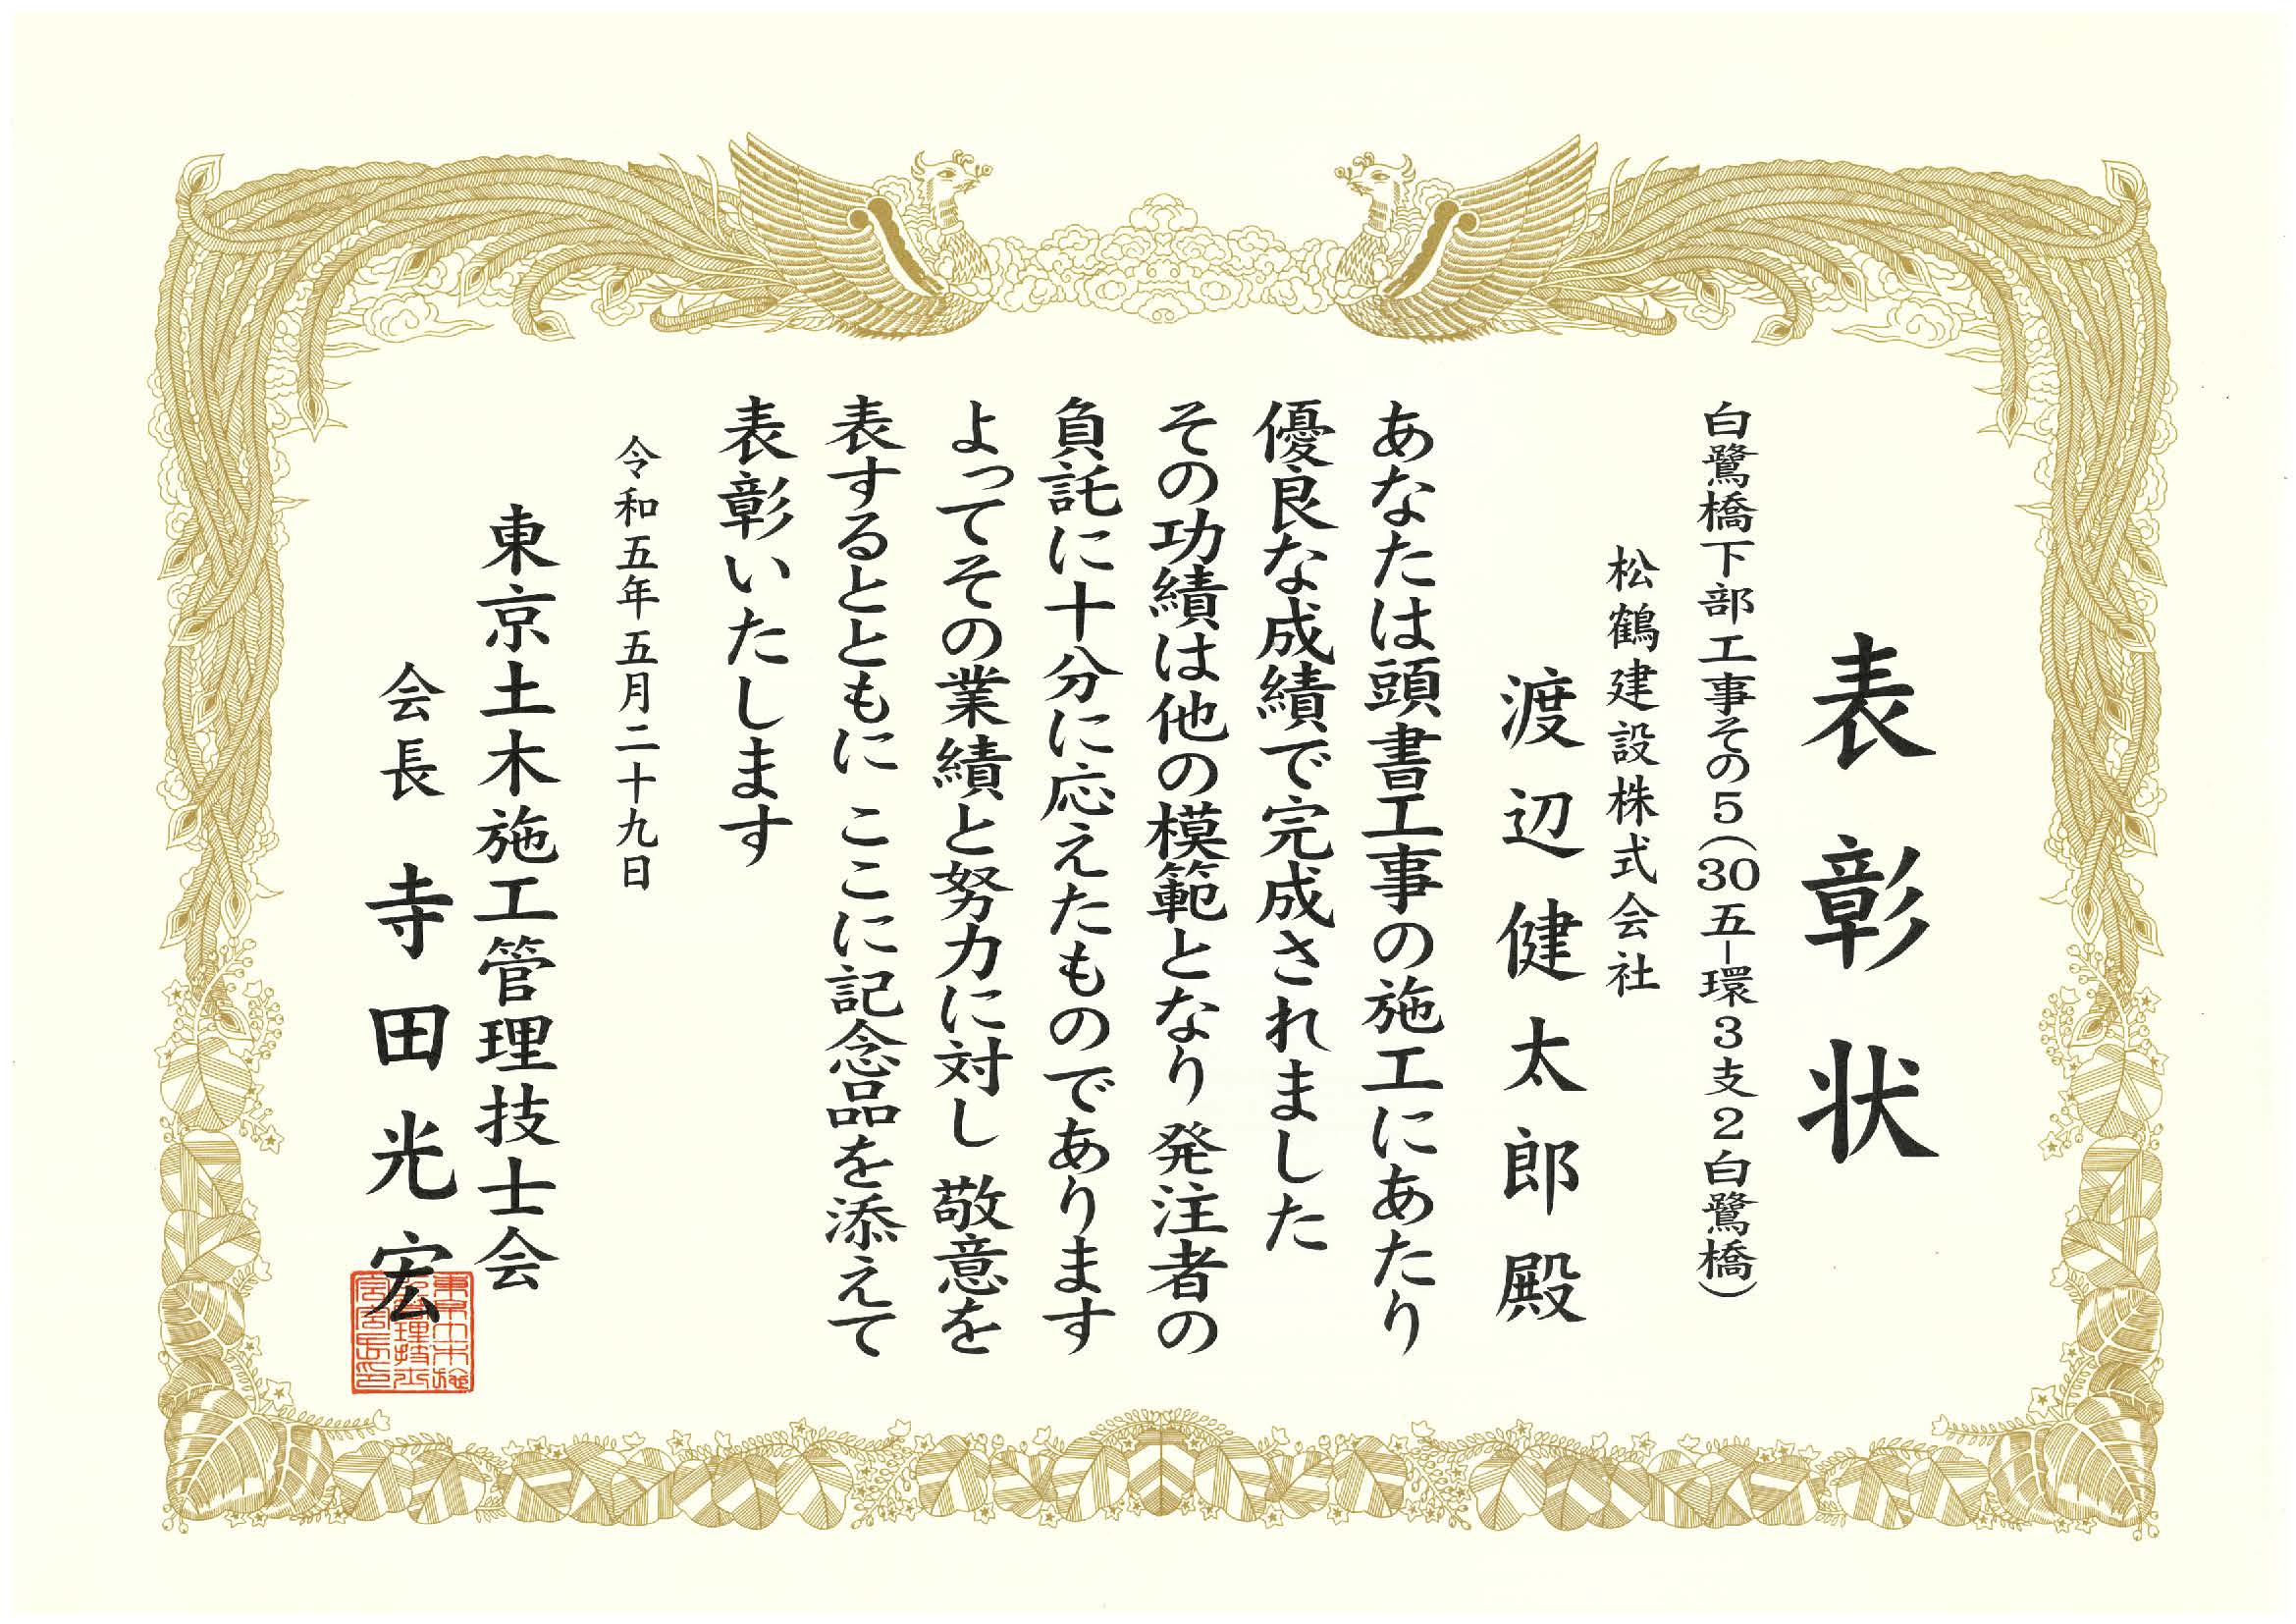 表彰状
白鷺橋下部工事その5(30五-環3支2白鷺橋)
松鶴建設株式会社
渡辺健太郎殿
あなたは頭書工事の施工にあたり
優良な成績で完成されました
その功績は他の模範となり発注者の
負託に十分に応えたものであります
よってその業績と努力に対し敬意を
表するとともに ここに記念品を添えて
表彰いたします
令和五年五月二十九日
東京土木施工管理技士会
会長 寺田光宏